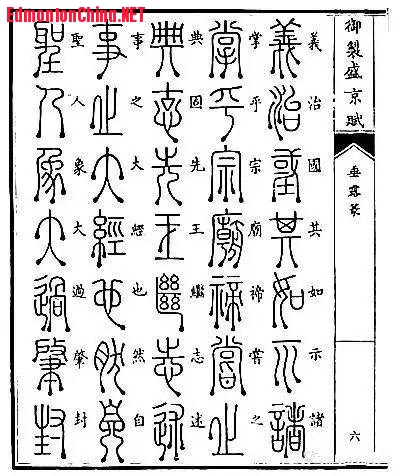 EdmontonChina.NET
御製盛京賦
垂露篆
六
義治國其如示諸
義治國其如示諸
掌乎宗廟禘嘗之
掌乎宗廟禘嘗之
典固先王繼志述
典固先王繼志述
事之大經也然自
事之大經也然自
聖人象大過肇封
聖人象大過肇封